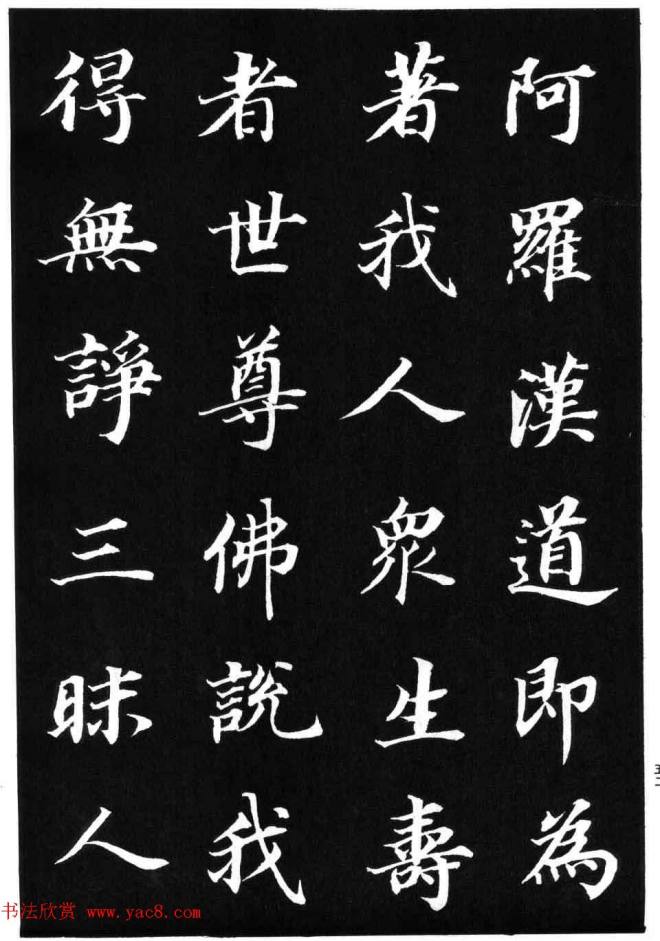 阿羅漢道即為
著我人眾生壽
者世尊佛說我
得無諍三昧人
五二
书法欣赏 www.yac8.com